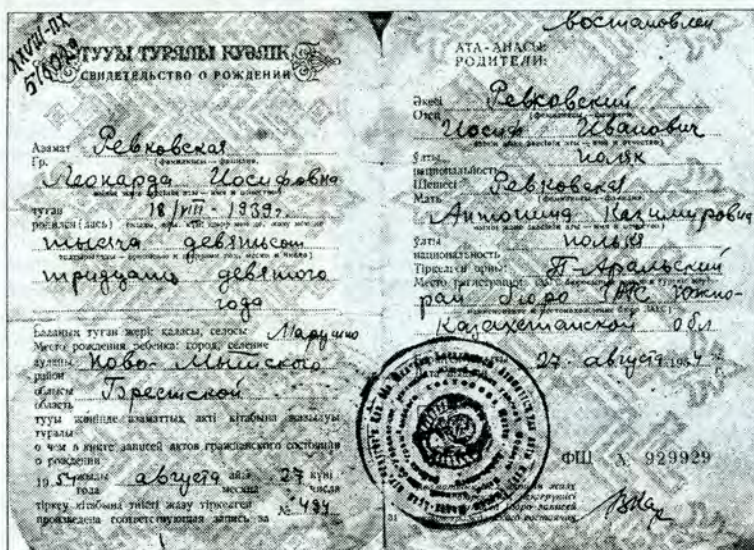 XXVIII-ПХ
ТУУЫ ТУРЯЛЫ КУӘЛІК
СВИДЕТЕЛЬСТВО О РОЖДЕНИИ
Азамат
Гр. Ревковская
(фамилиясы — фамилия)
Леонарда Иосифовна
туған
родился (лась) 18/VIII - 1939 г.
тысяча девятьсот
тридцать девятого
года
Баланың туған жері: қаласы, селосы
Место рождения ребенка: город, селение Марушно
ауданы
район Ново-Мышского
облысы
область Брестской
тууы жөнінде азаматтық акті кітабына жазылуы
туралы
о чем в книге записей актов гражданского состояния
о рождении
1954 жылы года августа айы месяца 27 күні числа
тіркеу кітабына тиісті жазу тіркелген
произведена соответствующая запись за № 434
восстановлен
АТА-АНАСЫ:
РОДИТЕЛИ:
Әкесі
Отец Ревковский
(фамилиясы — фамилия)
Иосиф Иванович
ұлты
национальность поляк
Шешесі
Мать Ревковская
(фамилиясы — фамилия)
Антонина Казимировна
ұлты
национальность полька
Тіркелген орны:
Место регистрации П-Аральский
рай бюро ЗАГС Южно-
Казахстанской обл
27 августа 1954 г.
ФШ № 929929